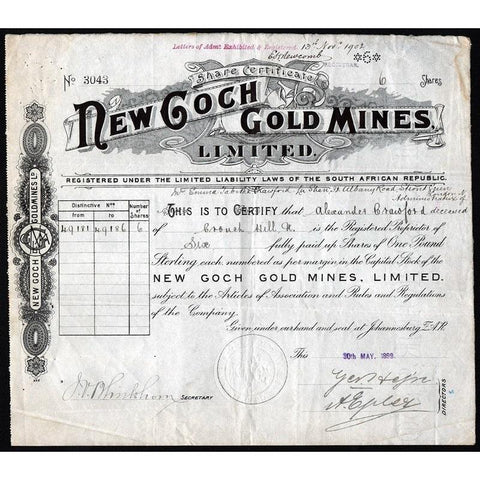 Letters of Admt Exhibited & Registered. 13th Novr 1902
REGISTRAR.
No 3043
Share Certificate
6 Shares
NEW GOCH GOLD MINES,
LIMITED.
REGISTERED UNDER THE LIMITED LIABILITY LAWS OF THE SOUTH AFRICAN REPUBLIC.
Albany Road, Stroud Green
Administratrix of
Distinctive Nos Number of Shares
from to
THIS IS TO CERTIFY that Alexander Crawford deceased
49181 49186 6
of Crouch Hill N. is the Registered Proprietor of
Six fully paid up Shares of One Pound
Sterling each, numbered as per margin, in the Capital Stock of the
NEW GOCH GOLD MINES, LIMITED.
subject to the Articles of Association and Rules and Regulations
of the Company.
Given under our hand and seal at Johannesburg Z.A.R.
This 30th MAY. 1899.
SECRETARY
DIRECTORS
NEW GOCH GOLDMINES LD